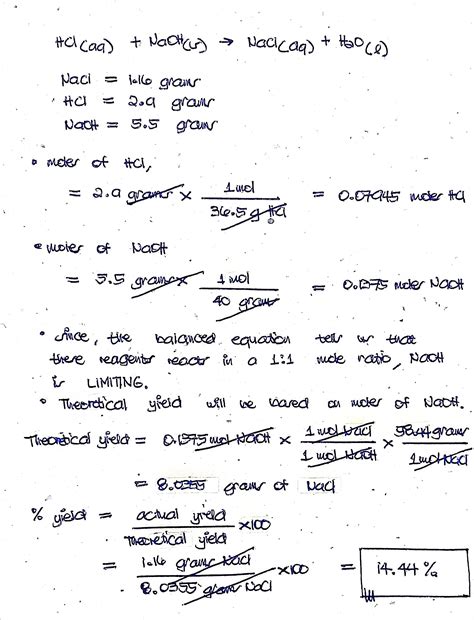 HCl(aq) + NaOH(s) → NaCl(aq) + H2O(l)
NaCl = 1.16 grams
HCl = 2.9 grams
NaOH = 5.5 grams
• moles of HCl,
= 2.9 grams × 1 mol / 36.5 g HCl = 0.07945 moles HCl
• moles of NaOH
= 5.5 grams × 1 mol / 40 grams = 0.1375 moles NaOH
• since, the balanced equation tell us that
these reagents reacts in a 1:1 mole ratio, NaOH
is LIMITING.
• Theoretical yield will be based on moles of NaOH.
Theoretical yield = 0.1375 mol NaOH × 1 mol NaCl / 1 mol NaOH × 58.44 grams / 1 mol NaCl
= 8.0355 grams of NaCl
% yield = actual yield / theoretical yield ×100
= 1.16 grams NaCl / 8.0355 grams NaCl ×100 = 14.44 %